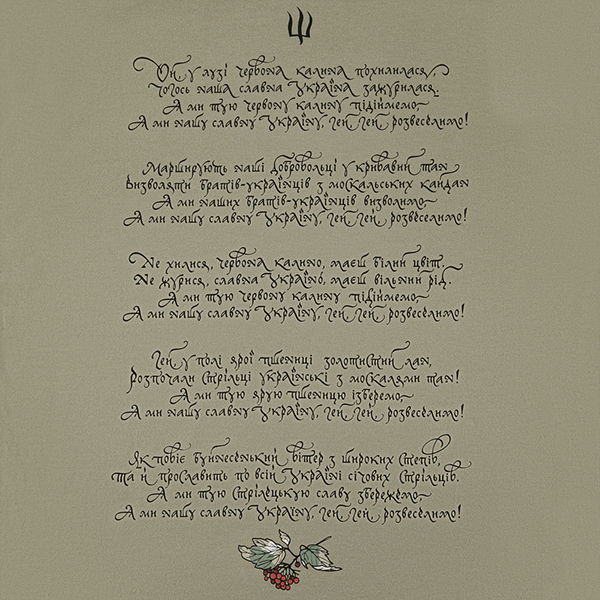 Ой, у лузі червона калина похилилася,
Чогось наша славна Україна зажурилася.
А ми тую червону калину підіймемо,
А ми нашу славну Україну, гей, гей, розвеселимо!
Марширують наші добровольці у кривавий тан
Визволяти братів-українців з москальських кайдан
А ми наших братів-українців визволимо,
А ми нашу славну Україну, гей, гей, розвеселимо!
Не хилися, червона калино, маєш білий цвіт.
Не журися, славна Україно, маєш вільний рід.
А ми тую червону калину підіймемо,
А ми нашу славну Україну, гей, гей, розвеселимо!
Гей, у полі ярої пшениці золотистий лан,
Розпочали стрільці українські з москалями тан!
А ми тую ярую пшеницю ізберемо,
А ми нашу славну Україну, гей, гей, розвеселимо!
Як повіє буйнесенький вітер з широких степів,
та й прославить по всій Україні січових стрільців.
А ми тую стрілецькую славу збережемо,
А ми нашу славну Україну, гей, гей, розвеселимо!